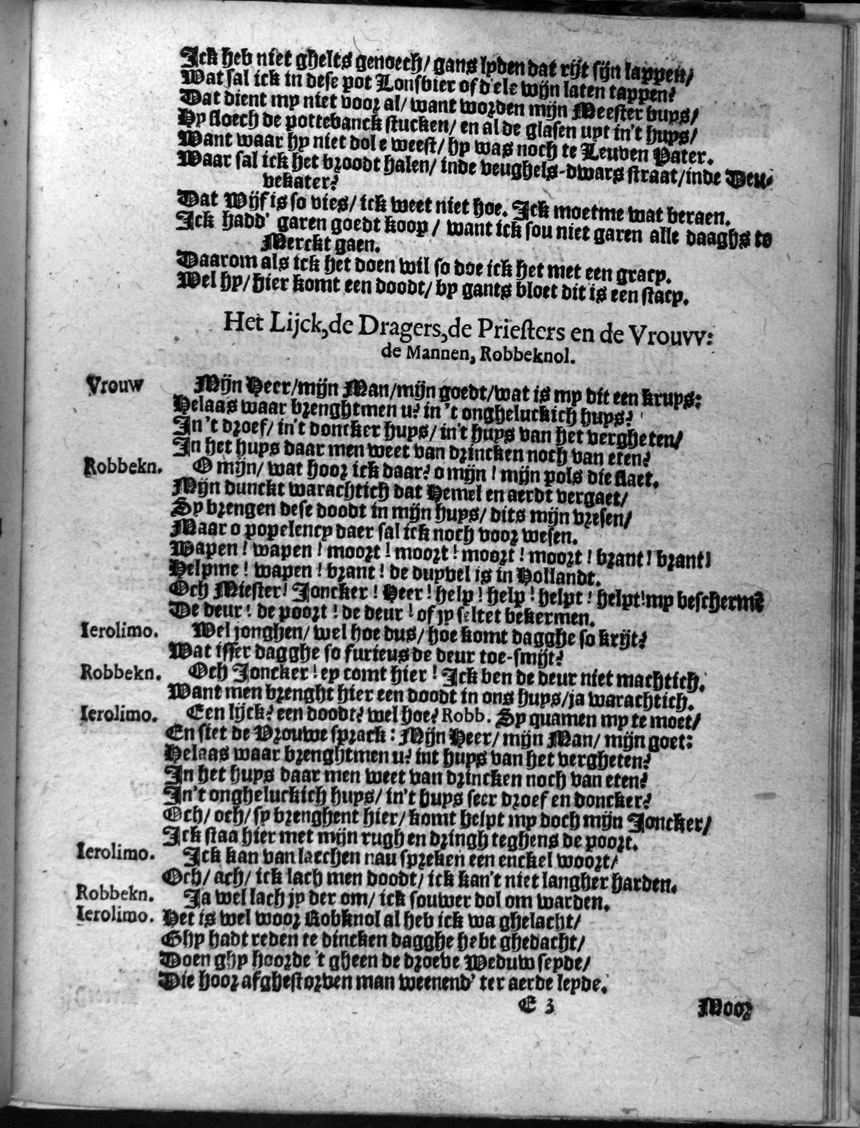 Ick heb niet ghelts genoech/ gans lyden dat rijt sijn lappen/
Wat sal ick in dese pot Lonsbier of d'ele wijn laten tappen?
Dat dient my niet voor al/ want worden mijn Meester buys/
Hy sloech de pottebanck stucken/ en al de glasen uyt in't huys/
Want waar hy niet dol e weest/ hy was noch te Leuven Pater.
Waar sal ick het broodt halen/ inde veughels-dwars straat/ inde Deu-
vekater?
Dat Wijf is so vies/ ick weet niet hoe. Ick moetme wat beraen.
Ick hadd' garen goedt koop/ want ick sou niet garen alle daaghs te
Merckt gaen.
Daarom als ick het doen wil so doe ick het met een gracy.
Wel hy/ hier komt een doodt/ by gants bloet dit is een stacy.
Het Lijck, de Dragers, de Priesters en de Vrouvv:
de Mannen, Robbeknol.
Vrouw Mijn Heer/ mijn Man/ mijn goedt/ wat is my dit een kruys:
Helaas waar brenghtmen u? in 't ongheluckich huys?
In 't droef/ in't doncker huys/ in't huys van het vergheten/
In het huys daar men weet van drincken noch van eten?
Robbekn. O mijn/ wat hoor ick daar? o mijn! mijn pols die slaet.
Mijn dunckt warachtich dat Hemel en aerdt vergaet/
Sy brengen dese doodt in mijn huys/ dits mijn vresen/
Maar o popelency daer sal ick noch voor wesen.
Wapen! wapen! moort! moort! moort! moort! brant! brant!
Helpme! wapen! brant! de duyvel is in Hollandt.
Och Miester! Joncker! Heer! help! help! helpt! helpt! my beschermt
De deur! de poort! de deur! of jy seltet bekermen.
Ierolimo. Wel jonghen/ wel hoe dus/ hoe komt dagghe so krijt?
Wat isser dagghe so furieus de deur toe-smijt?
Robbekn. Och Joncker! ey comt hier! Ick ben de deur niet machtich.
Want men brenght hier een doodt in ons huys/ ja warachtich.
Ierolimo. Een lijck? een doodt? wel hoe? Robb. Sy quamen my te moet/
En siet de Vrouwe sprack: Mijn Heer/ mijn Man/ mijn goet:
Helaas waar brenghtmen u? int huys van het vergheten?
In het huys daar men weet van drincken noch van eten?
In't ongheluckich huys/ in't huys seer droef en doncker?
Och/ och/ sy brenghent hier/ komt helpt my doch mijn Joncker/
Ick staa hier met mijn rugh en dringh teghens de poort.
Ierolimo. Ick kan van lacchen nau spreken een enckel woort/
Och/ ach/ ick lach men doodt/ ick kan't niet langher harden.
Robbekn. Ja wel lach jy der om/ ick souwer dol om warden.
Ierolimo. Het is wel woor Robknol al heb ick wa ghelacht/
Ghy hadt reden te dincken dagghe hebt ghedacht/
Doen ghy hoorde 't gheen de droeve Weduw seyde/
Die hoor afghestorven man weenend' ter aerde leyde.
E 3 Moor